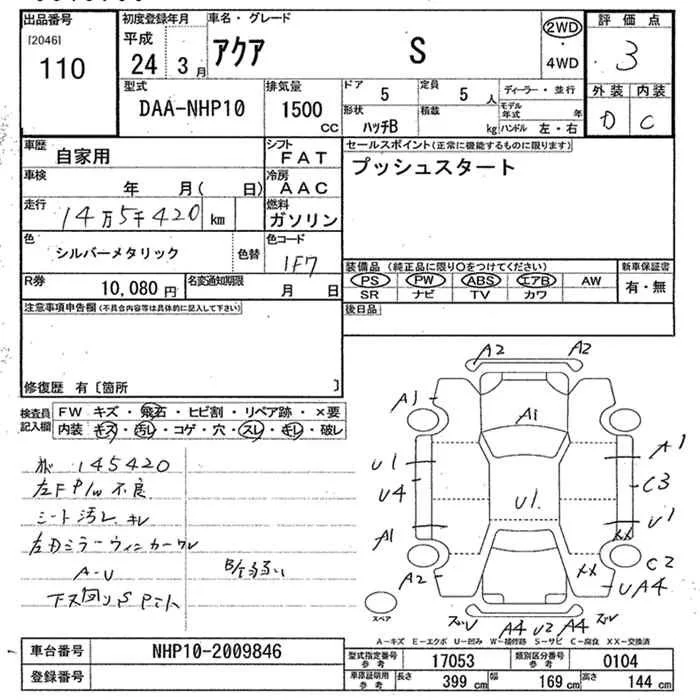 出品番号 初度登録年月 車名・グレード 評価点
[2046] 平成 アクア S 2WD
110 24 3月 4WD 3
型式 排気量 ドア 5 定員 5人 ディーラー・並行 外装 内装
DAA-NHP10 1500cc 形状 ハッチB 積載 kg モデル年式 年 D C
ハンドル 左・右
車歴 自家用 シフト FAT セールスポイント(正常に機能するものに限ります)
車検 年 月( 日) 冷房 AAC プッシュスタート
走行 14万5千420 km 燃料 ガソリン
色 シルバーメタリック 色替 色コード 1F7
装備品(純正品に限り○をつけてください) 新車保証書
R券 10,080円 名変通知期限 月 日 PS PW ABS エアB AW 有・無
SR ナビ TV カワ
注意事項申告欄(不具合内容等は具体的に記入して下さい) 後日品
修復歴 有〔箇所 〕
検査員記入欄 FW キズ・飛石・ヒビ割・リペア跡・×要
内装・キズ・汚レ・コゲ・穴・スレ・キレ・破レ
A2 A2
A1 A1
U1 A1
U4 U1 C3
A1 U1
XX
A2 XX C2
UA4
A4 U2 A4
スペア
145420
左F P/W 不良
シート汚レ、キレ
左Dミラーウィンカーワレ
A-U
下ス回りS
A-キズ E-エクボ U-凹み W-補修跡 S-サビ C-腐食 XX-交換済
車台番号 NHP10-2009846 型式指定番号 参考 17053 類別区分番号 参考 0104
登録番号 車庫証明用 参考 長さ 399 cm 幅 169 cm 高さ 144 cm